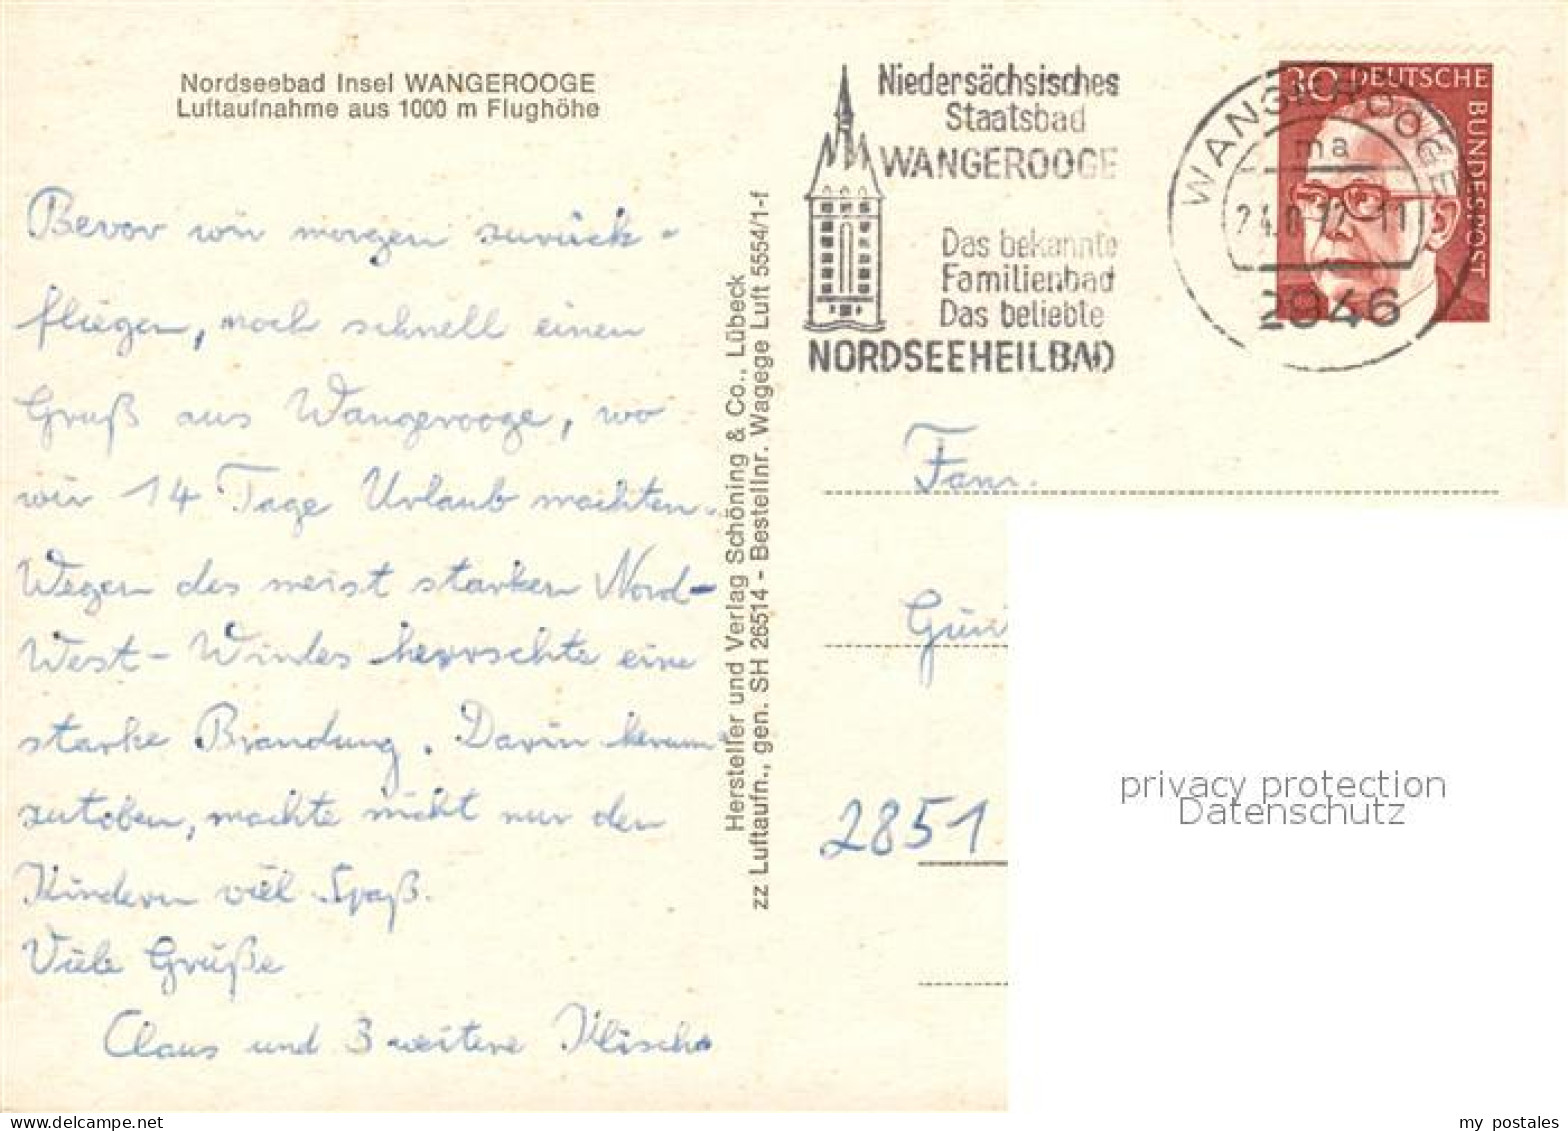 Nordseebad Insel WANGEROOGE
Luftaufnahme aus 1000 m Flughöhe
Bevor wir morgen zurück-
fliegen, noch schnell einen
Gruß aus Wangerooge, wo
wir 14 Tage Urlaub machten.
Wegen des meist starken Nord-
West-Windes herrschte eine
starke Brandung. Darin herum-
zutoben, machte nicht nur den
Kindern viel Spaß.
Viele Grüße
Claus und 3 weitere
Hersteller und Verlag Schöning & Co., Lübeck
zz Luftaufn., gen. SH 26514 - Bestellnr. Wagege Luft 5554/1-f
Niedersächsisches
Staatsbad
WANGEROOGE
Das bekannte
Familienbad
Das beliebte
NORDSEEHEILBAD
30 DEUTSCHE
BUNDESPOST
WANGEROOGE
ma
24.8.72-11
2946
Fam.
2851
privacy protection
Datenschutz
my postales